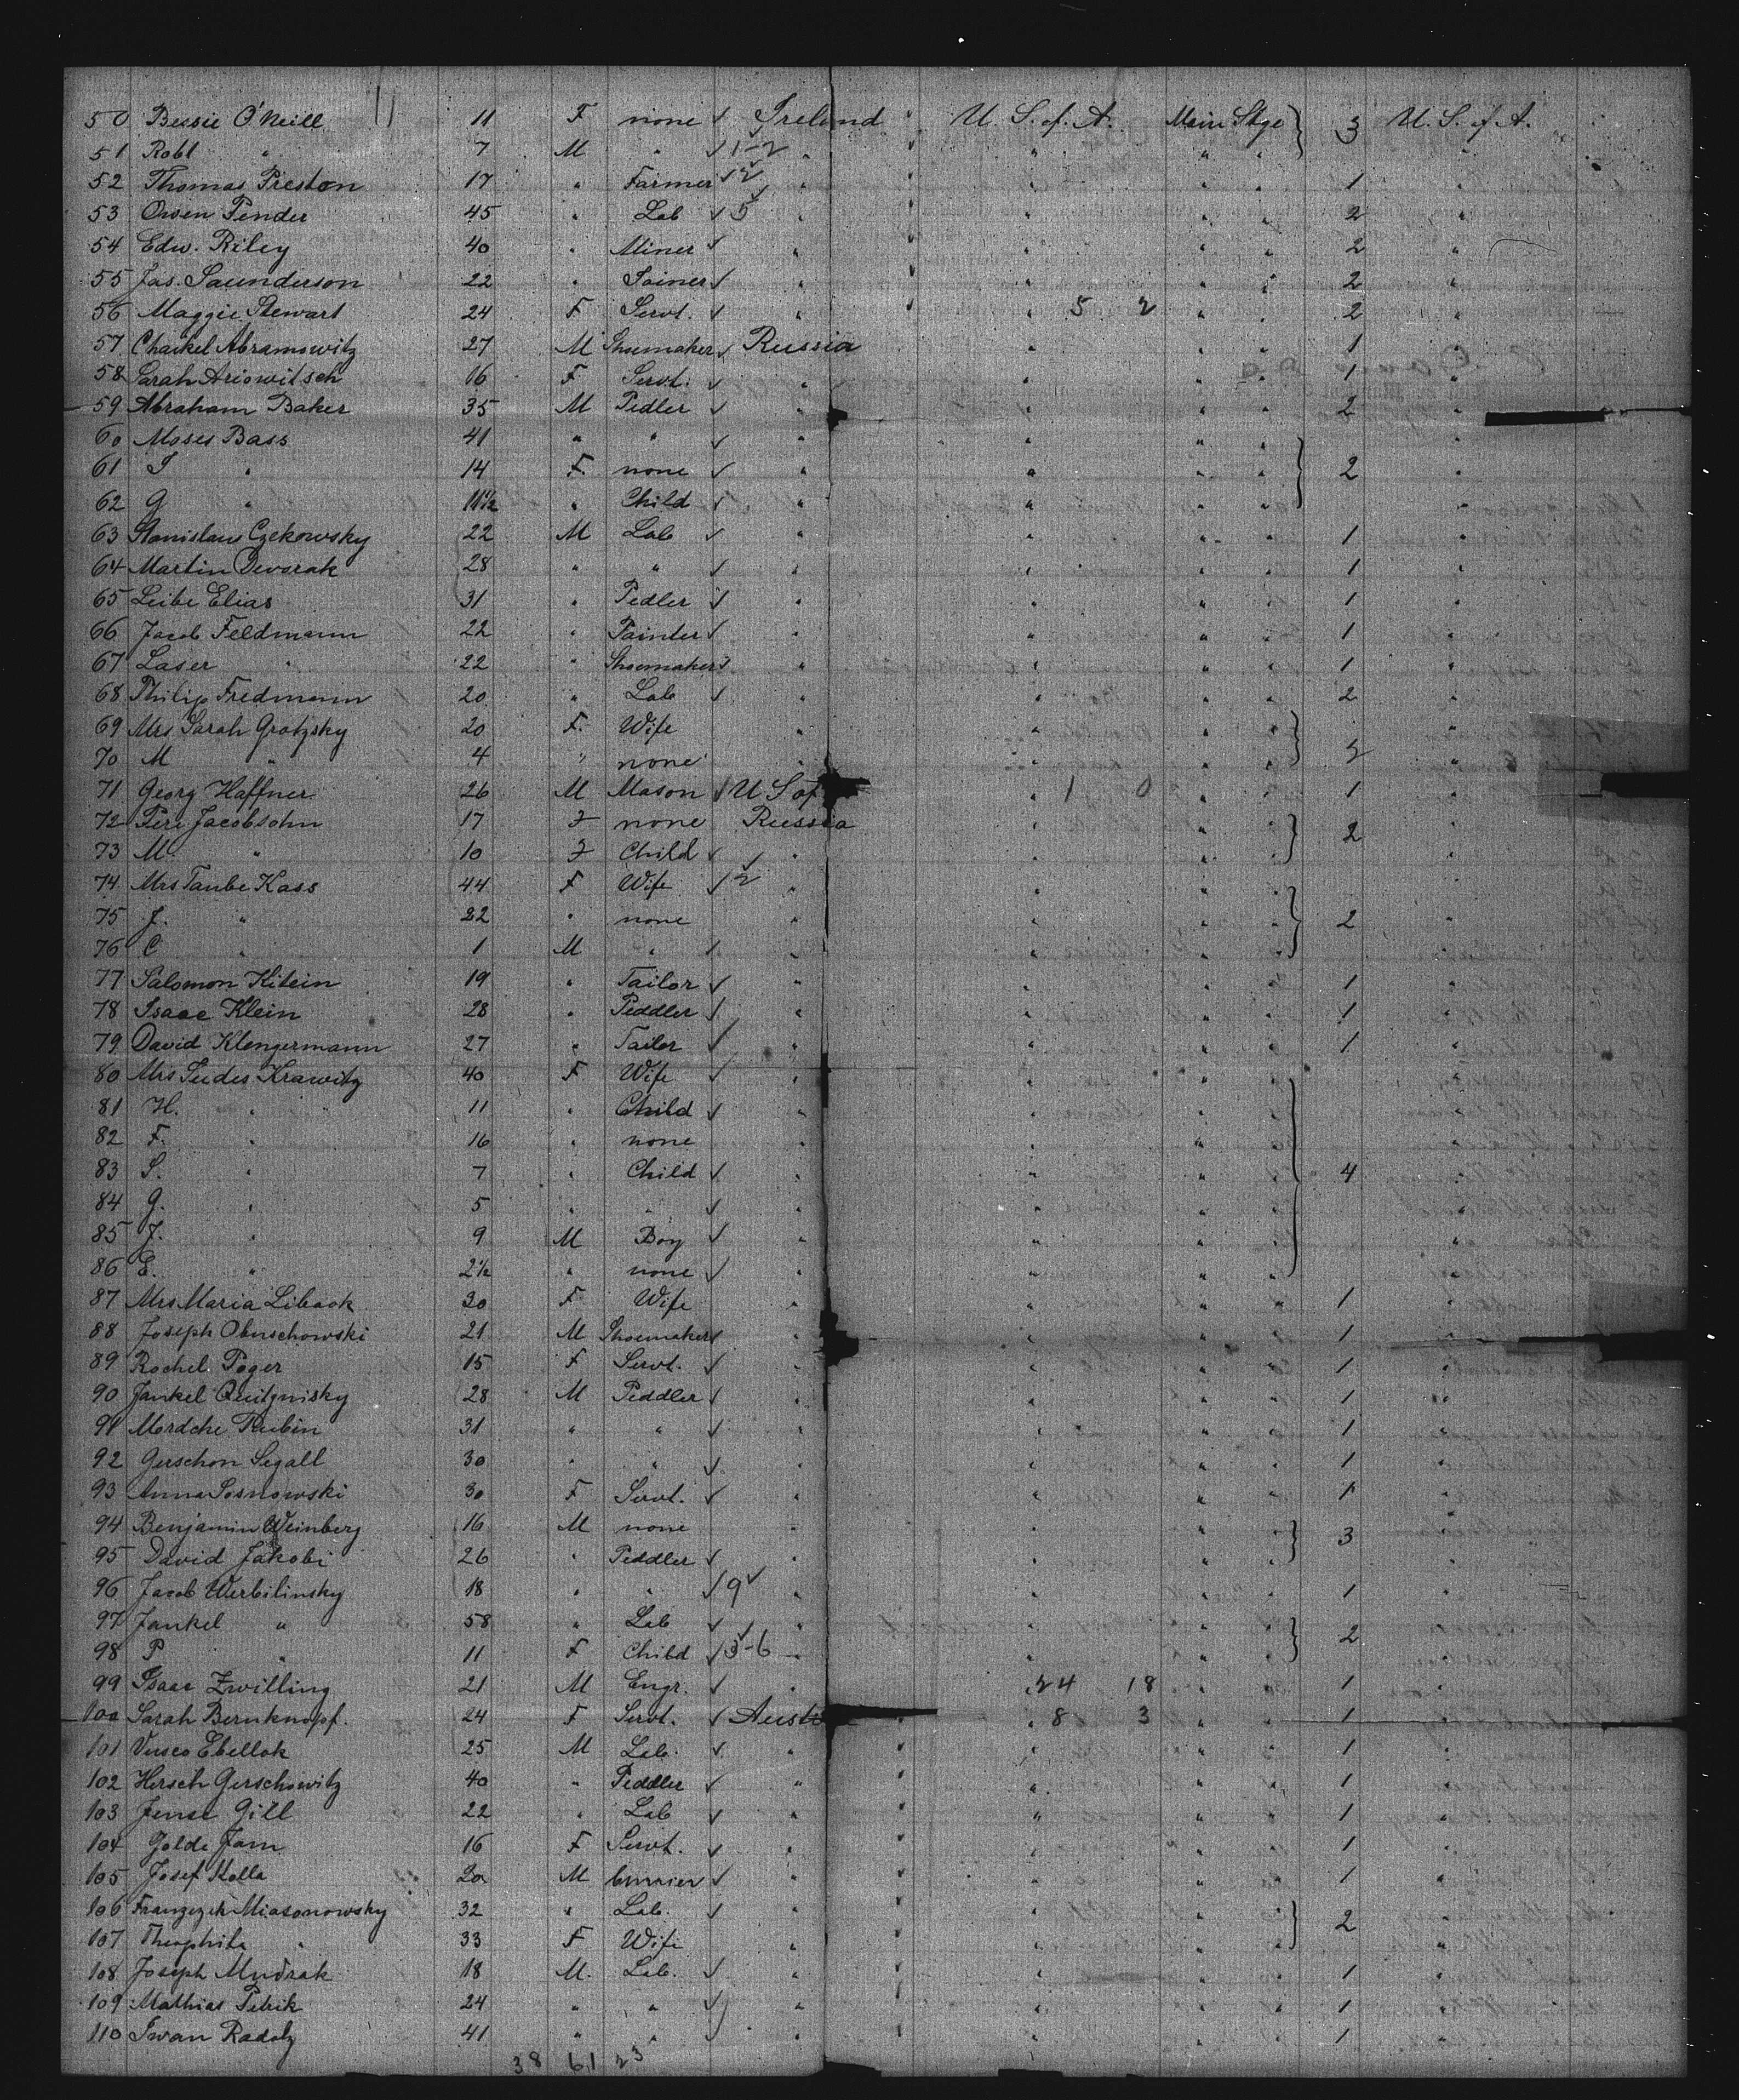 50 Bessie O'Neill 11 F none ✓ Ireland U. S. of A. Main Stge 3 U. S. of A.
51 Robt " 7 M " ✓ 1-2 " " " " "
52 Thomas Preston 17 " Farmer ✓ 2 " " " " 1 "
53 Owen Pender 45 " Lab ✓ 5 " " " " 2 "
54 Edw. Riley 40 " Miner ✓ " " " " 2 "
55 Jas. Saunderson 22 " Joiner ✓ " " " " 2 "
56 Maggie Stewart 24 F Servt. ✓ " " 5 2 " " 2 "
57 Chaikel Abramowitz 27 M Shoemaker ✓ Russia " " " 1 "
58 Sarah Ariowitsch 16 F Servt. ✓ " " " " 1 "
59 Abraham Baker 35 M Pedler ✓ " " " " 2 "
60 Moses Bass 41 " " ✓ " " " " "
61 I " 14 F. none ✓ " " " " 2 "
62 G " 11½ " Child ✓ " " " " "
63 Stanislaus Czekowsky 22 M Lab ✓ " " " " 1 "
64 Martin Dworak 28 " " ✓ " " " " 1 "
65 Leibe Elias 31 " Pedler ✓ " " " " 1 "
66 Jacob Feldmann 22 " Painter ✓ " " " " 1 "
67 Laser " 22 " Shoemaker ✓ " " " " 1 "
68 Philip Fredmann 20 " Lab ✓ " " " " 2 "
69 Mrs Sarah Grotzsky 20 F. Wife " " " " "
70 M " 4 " none " " " " 2 "
71 Georg Haffner 26 M Mason ✓ U S of " 1 0 " " 1 "
72 Fere Jacobsohn 17 F none Russia " " " 2 "
73 M. " 10 F Child ✓ " " " " "
74 Mrs Taube Kass 44 F Wife ✓ 2 " " " " "
75 J. " 22 " none " " " " 2 "
76 C " 1 M " ✓ " " " " "
77 Salomon Kitein 19 " Tailor ✓ " " " " 1 "
78 Isaac Klein 28 " Peddler ✓ " " " " 1 "
79 David Klengermann 27 " Tailor ✓ " " " " 1 "
80 Mrs Krawitz 40 F Wife ✓ " " " " "
81 H. " 11 " Child ✓ " " " " "
82 F. " 16 " none " " " " "
83 S. " 7 " Child ✓ " " " " 4 "
84 G. " 5 " " ✓ " " " " "
85 J. " 9 M Boy ✓ " " " " "
86 E. " 2½ " none ✓ " " " " "
87 Mrs Maria Liback 30 F Wife " " " " 1 "
88 Joseph Obuschowski 21 M Shoemaker ✓ " " " " 1 "
89 Rochel Poger 15 F Servt. ✓ " " " " 1 "
90 Jankel 28 M Peddler ✓ " " " " 1 "
91 Mordche Rubin 31 " " ✓ " " " " 1 "
92 Gerschon Segall 30 " " ✓ " " " " 1 "
93 Anna Sosnowski 30 F Servt. ✓ " " " " 1 "
94 Benjamin Weinberg 16 M none " " " " 3 "
95 David Jakobi 26 " Peddler ✓ " " " " "
96 Jacob Werbilinsky 18 " " ✓ 9 " " " " 1 "
97 Jankel " 58 " Lab ✓ " " " " 2 "
98 P " 11 F Child ✓ 3-6 " " " " "
99 Isaac Zwilling 21 M Engr. ✓ " " 24 18 " " 1 "
100 Sarah Bernknopf. 24 F Servt. ✓ Aust " 8 3 " " 1 "
101 Vusco Ebellok 25 M Lab. ✓ " " " " 1 "
102 Hersch Gerschowitz 40 " Peddler ✓ " " " " 1 "
103 Jense Gill 22 " Lab ✓ " " " " 1 "
104 Golde Jam 16 F Servt. ✓ " " " " 1 "
105 Josef Kolla 20 M ✓ " " " " 1 "
106 Franzezek Miasonowsky 32 " Lab. ✓ " " " " 2 "
107 Theophila " 33 F Wife " " " " "
108 Joseph Mudrak 18 M. Lab. ✓ " " " " 1 "
109 Mathias Petrik 24 " " ✓ " " " " 1 "
110 Iwan Radolz 41 " " ✓ " " " " 1 "
38 61 23